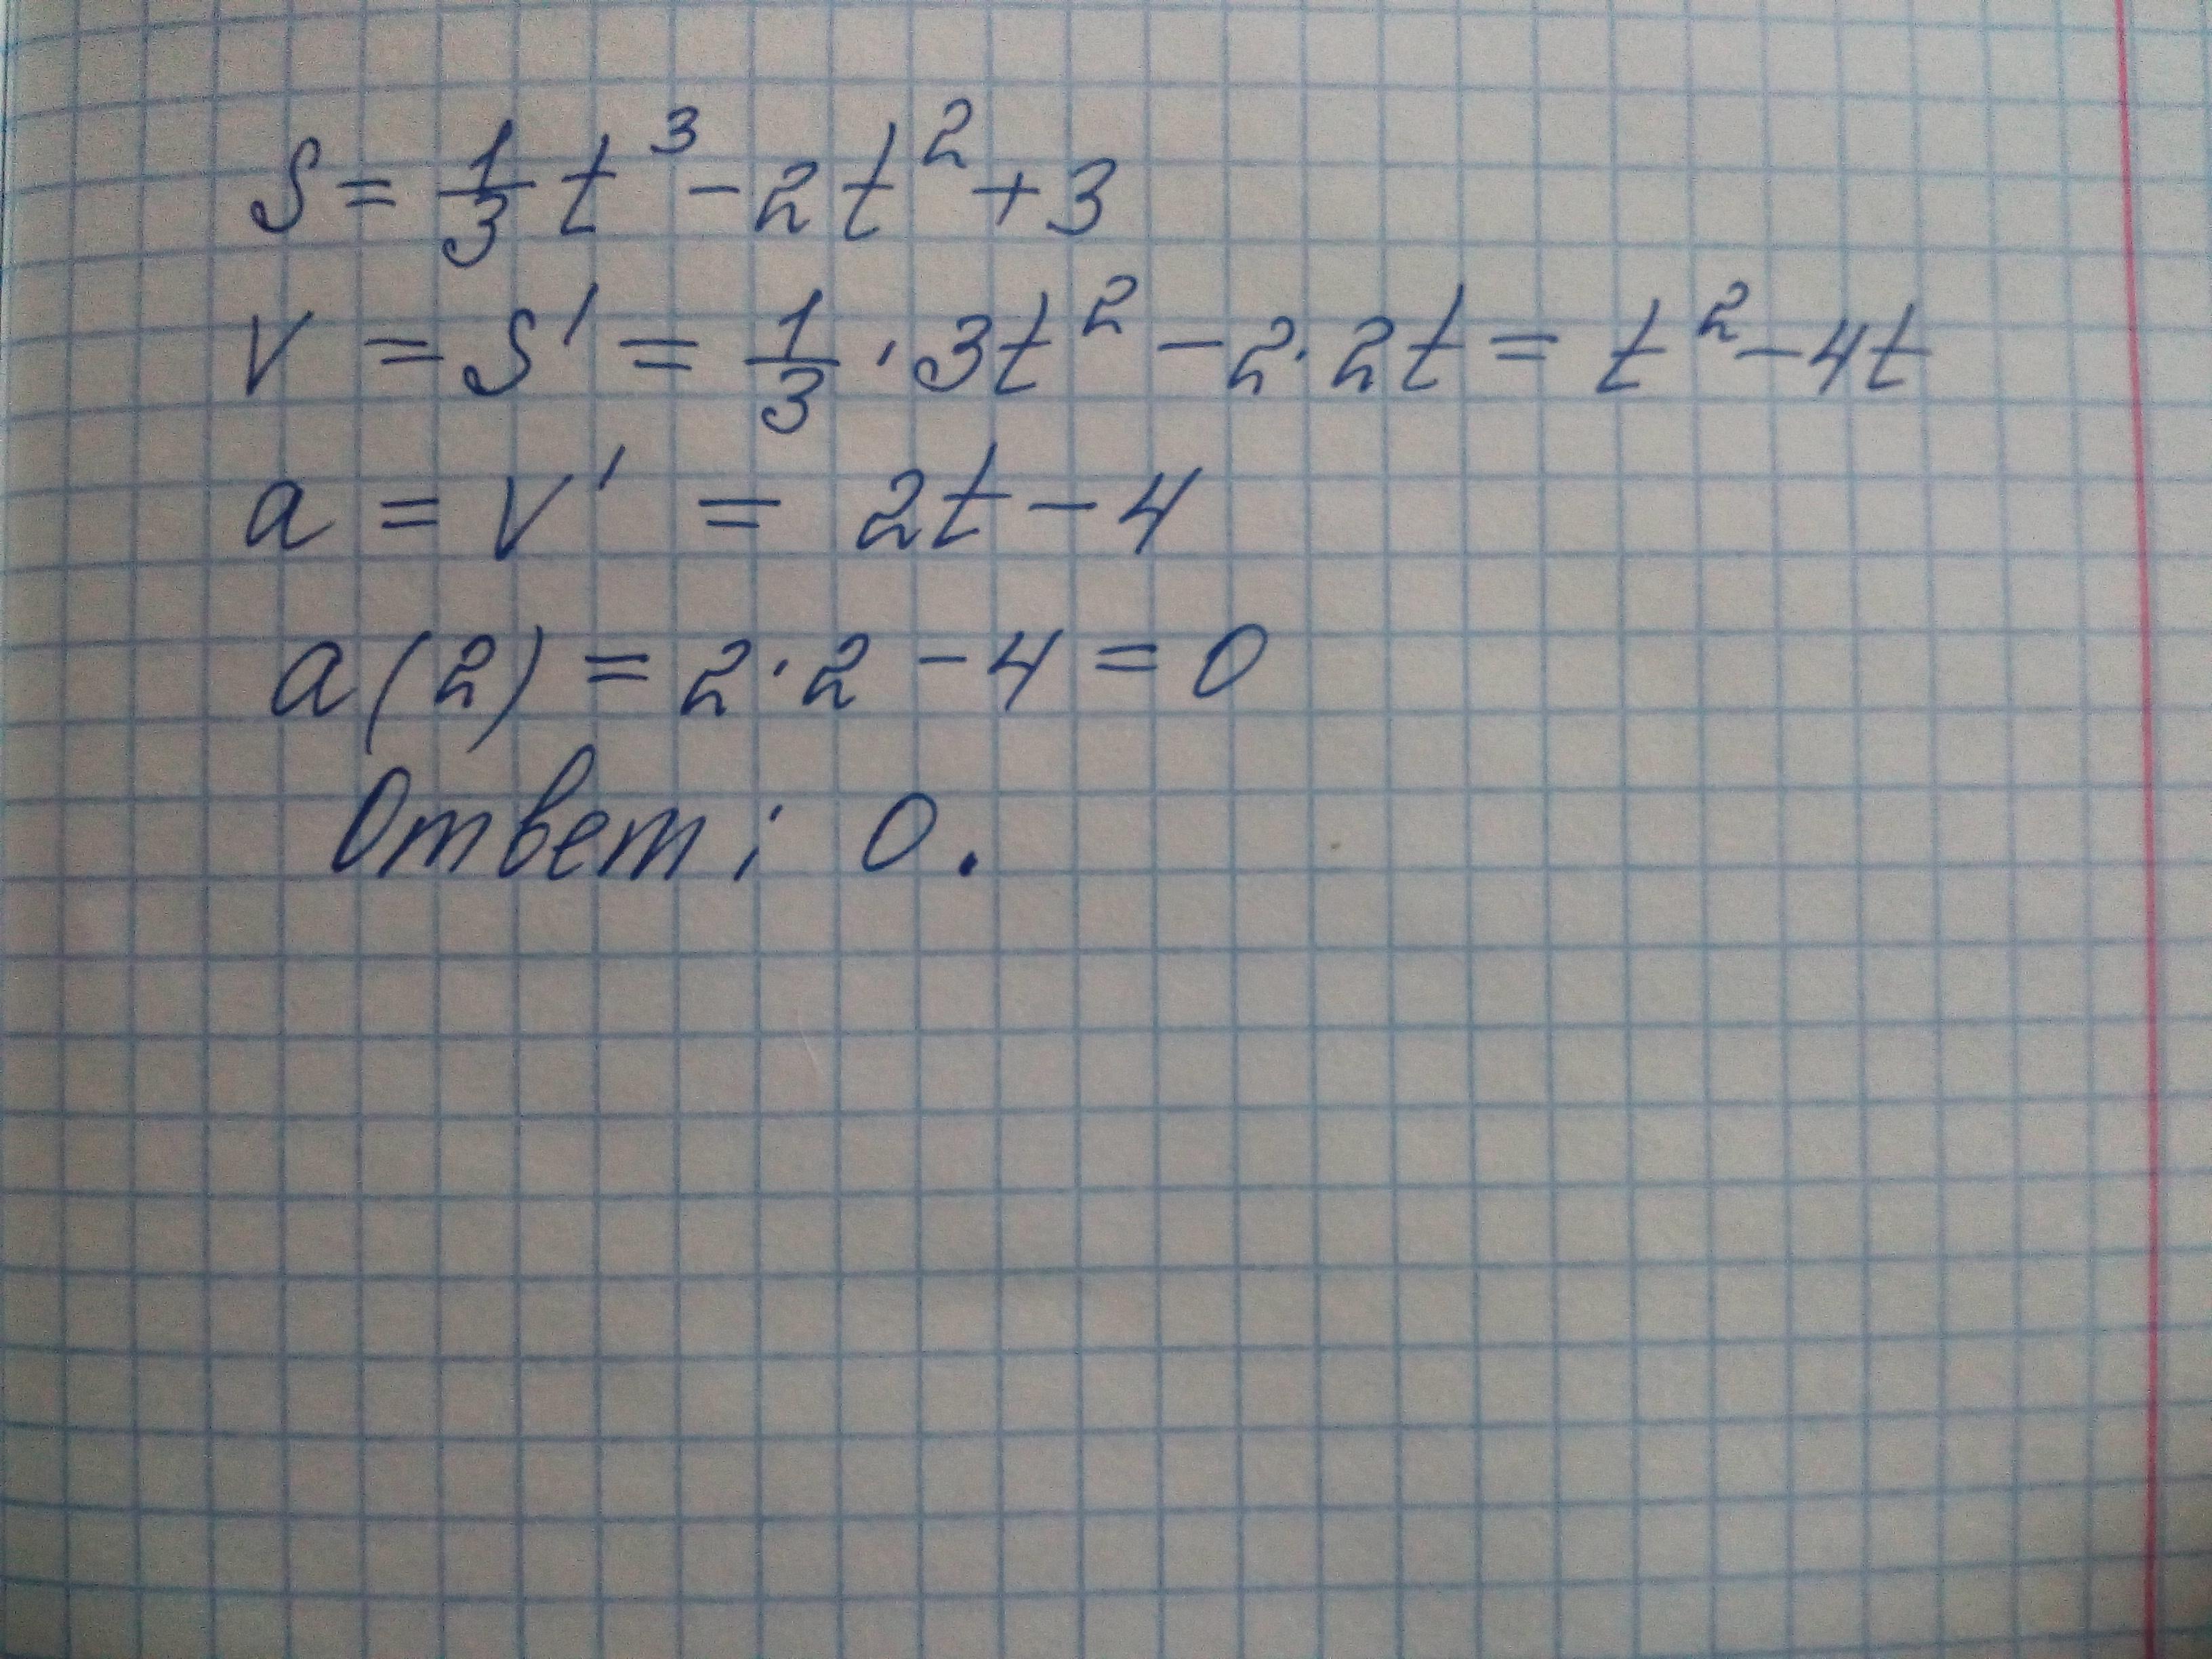 S = 1/3 t³ - 2t² + 3
V = S' = 1/3 · 3t² - 2 · 2t = t² - 4t
a = V' = 2t - 4
a(2) = 2 · 2 - 4 = 0
Ответ: 0.